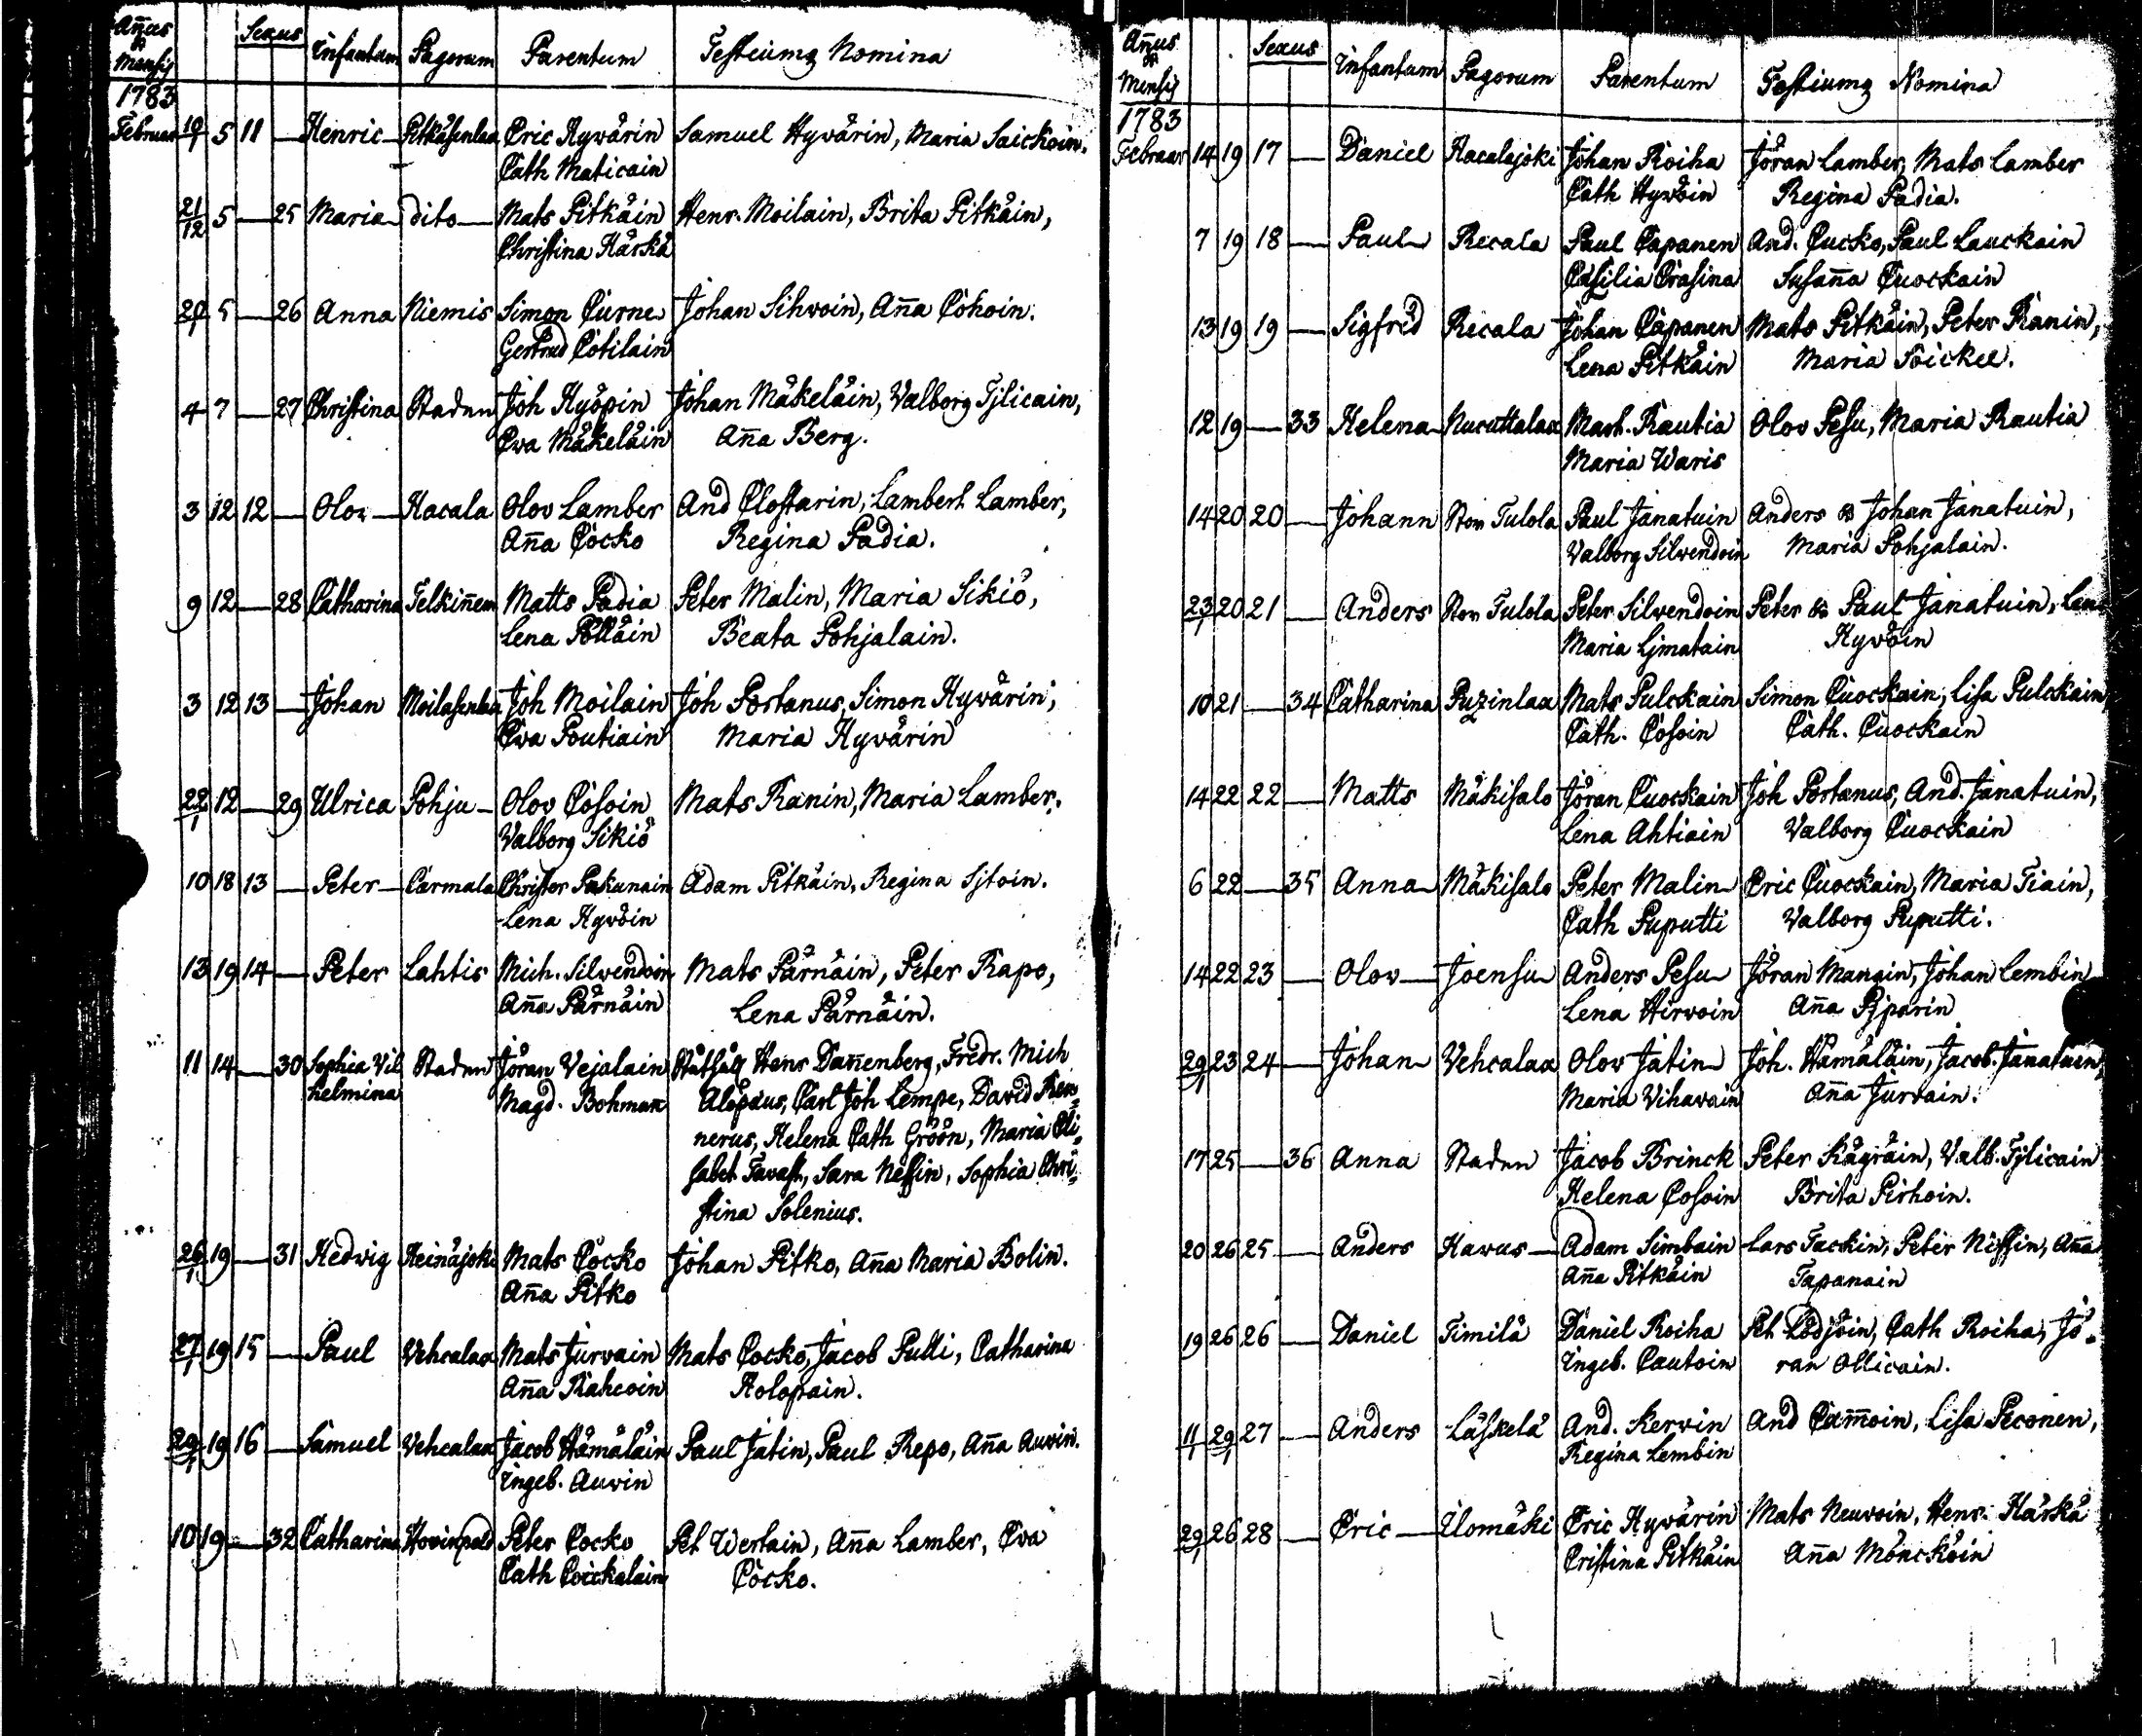 Añus & Mensis Sexus Infantum Pagorum Parentum Testiumq Nomina
1783
Februar 19/1 5 11 — Henric Pitkäsenlax Eric Hyvärin Samuel Hyvärin, Maria Saickoin.
Cath Maticain
21/12 5 — 25 Maria dito Mats Pitkäin Henr. Moilain, Brita Pitkäin,
Christina Härkä
29/1 5 — 26 Anna Niemis Simon Curne Johan Sihvoin, Aña Cohoin.
Gertrud Cotilain
4 7 — 27 Christina Staden Joh Hyöpin Johan Mäkeläin, Valborg Tjlicain,
Eva Mäkeläin Aña Berg.
3 12 12 — Olov Hacala Olov Lamber And Clostarin, Lambert Lamber,
Aña Cocko Regina Padia.
9 12 — 28 Catharina Telkiñem Matts Padia Peter Malin, Maria Sikiö,
Lena Pölläin Beata Pohjalain.
3 12 13 — Johan Moilasenlax Joh Moilain Joh Portanus, Simon Hyvärin,
Eva Poutiain Maria Hyvärin
22/1 12 — 29 Ulrica Pohju Olov Cosoin Mats Ranin, Maria Lamber.
Valborg Sikiö
10 18 13 — Peter Carmala Christer Pakunain Adam Pitkäin, Regina Sjtoin.
Lena Hyvöin
13 19 14 — Peter Lahtis Mich. Silvendoin Mats Pärnäin, Peter Rapo,
Aña Pärnäin Lena Pärnäin.
11 14 — 30 Sophia Vil Staden Jöran Vejalain Henr Dañenberg, Fredr. Mich
helmina Magd. Bohman Alopæus, Carl Joh Lempe, David Ren=
nerus, Helena Cath Gröön, Maria Eli=
sabet Tavast, Sara Nessin, Sophia Chri=
stina Solenius.
26/1 19 — 31 Hedvig Heinäjoki Mats Cocko Johan Pitko, Aña Maria Bolin.
Aña Pitko
27/1 19 15 — Paul Vehcalax Mats Jurvain Mats Cocko, Jacob Pulli, Catharina
Aña Rahcoin Holopain.
29/1 19 16 — Samuel Vehcalax Jacob Hämäläin Paul Jatin, Paul Repo, Aña Auvin.
Ingeb. Auvin
10 19 — 32 Catharina Hovinpold Peter Cocko Pet Wertain, Aña Lamber, Eva
Cath Coickalain Cocko.
Añus & Mensis Sexus Infantum Pagorum Parentum Testiumq Nomina
1783
Februar 14 19 17 — Daniel Hacalajoki Johan Roiha Jöran Lamber, Mats Lamber
Cath Hyvöin Regina Padia.
7 19 18 — Paul Recala Paul Capanen And. Cucko, Paul Lauckain
Cæsilia Erasina Susaña Cuockain
13 19 19 — Sigfrid Recala Johan Capanen Mats Pitkäin, Peter Ranin,
Lena Pitkäin Maria Soickel.
12 19 — 33 Helena Nucuttalax Mart. Rautia Olov Pesu, Maria Rautia
Maria Waris
14 20 20 — Johann Stor Tulola Paul Janatuin Anders & Johan Janatuin,
Valborg Silvendoin Maria Pohjalain.
23/1 20 21 — Anders Stor Tulola Peter Silvendoin Peter & Paul Janatuin, Lena
Maria Ljmatain Hyvöin
10 21 — 34 Catharina Puzinlax Mats Pulckain Simon Cuockain, Lisa Pulckain
Cath. Cosoin Cath. Cuockain
14 22 22 — Matts Mäkisalo Jöran Cuockain Joh Portanus, And. Janatuin,
Lena Ahtiain Valborg Cuockain
6 22 — 35 Anna Mäkisalo Peter Malin Eric Cuockain, Maria Tiain,
Cath Puputti Valborg Puputti.
14 22 23 — Olov Joensu Anders Pesu Jöran Mangin, Johan Lembin
Lena Hirvoin Aña Pjparin
29/1 23 24 — Johan Vehcalax Olov Jatin Joh. Hämäläin, Jacob Janatuin,
Maria Vihavain Aña Jurvain.
17 25 — 36 Anna Staden Jacob Brinck Peter Kägräin, Valb. Tjlicain
Helena Cosoin Brita Pirhoin.
20 26 25 — Anders Havus Adam Simbain Lars Tackin, Peter Nissin, Aña
Aña Pitkäin Tapanain
19 26 26 — Daniel Timilä Daniel Roiha Pet Lödjöin, Cath Roiha, Jö=
Ingeb. Cautoin ran Ollicain.
11 29/1 27 — Anders Läskelä And. Kervin And Cam̃oin, Lisa Peconen,
Regina Lembin
29/1 26 28 — Eric Ulomäki Eric Hyvärin Mats Neuvoin, Henr. Härkä
Cristina Pitkäin Aña Möncköin